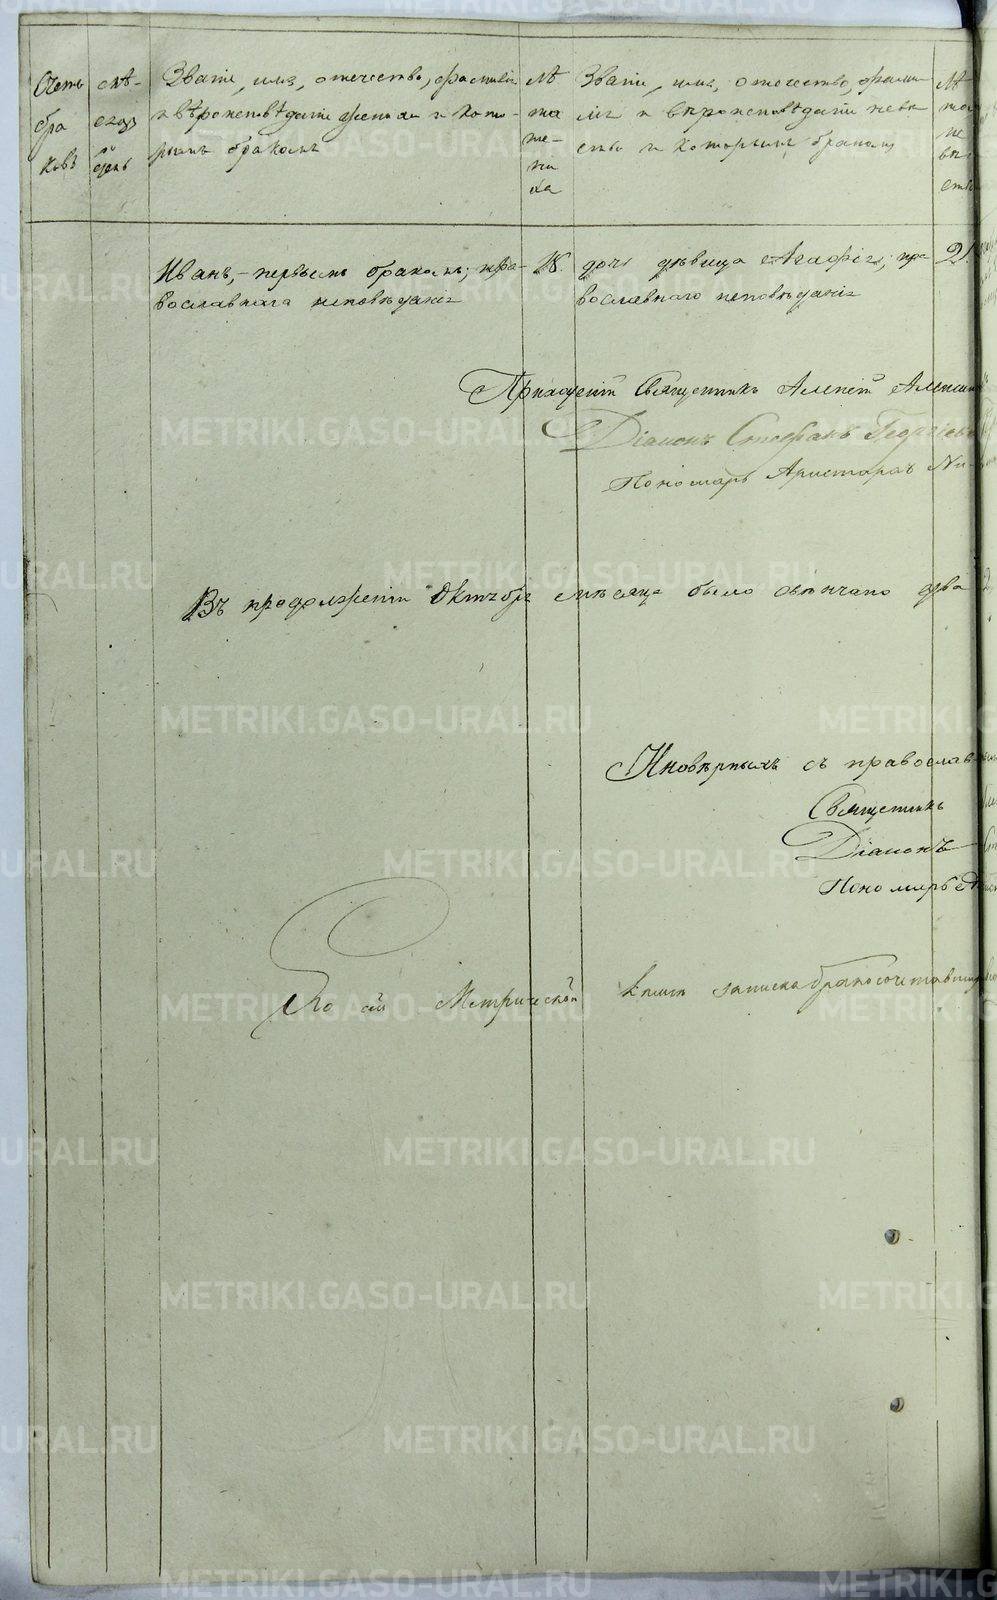 Счетъ бра ковъ
мѣ- сяцъ и день
Званіе, имя, отечество, фамилія
и вѣроисповѣданіе жениха и кото-
рымъ бракомъ
Лѣ та же- ни ха
Званіе, имя, отечество, фами
лія и вѣроисповѣданіе невѣ
сты и которымъ бракомъ
Лѣ та не вѣ сты
Иванъ, первымъ бракомъ; пра-
вославнаго исповѣданія
18.
дочь дѣвица Агафія; пра
вославнаго исповѣданія
21
Приходскій Священникъ Алексій
Діаконъ Стефанъ Георгіевъ
Пономарь Аристархъ
Въ продолженіи Октября мѣсяца было вѣнчано два 2
Иновѣрныхъ съ православ
Священникъ
Діаконъ
Пономарь
По сей Метрической книги записка бракосочетавшихся
METRIKI.GASO-URAL.RU